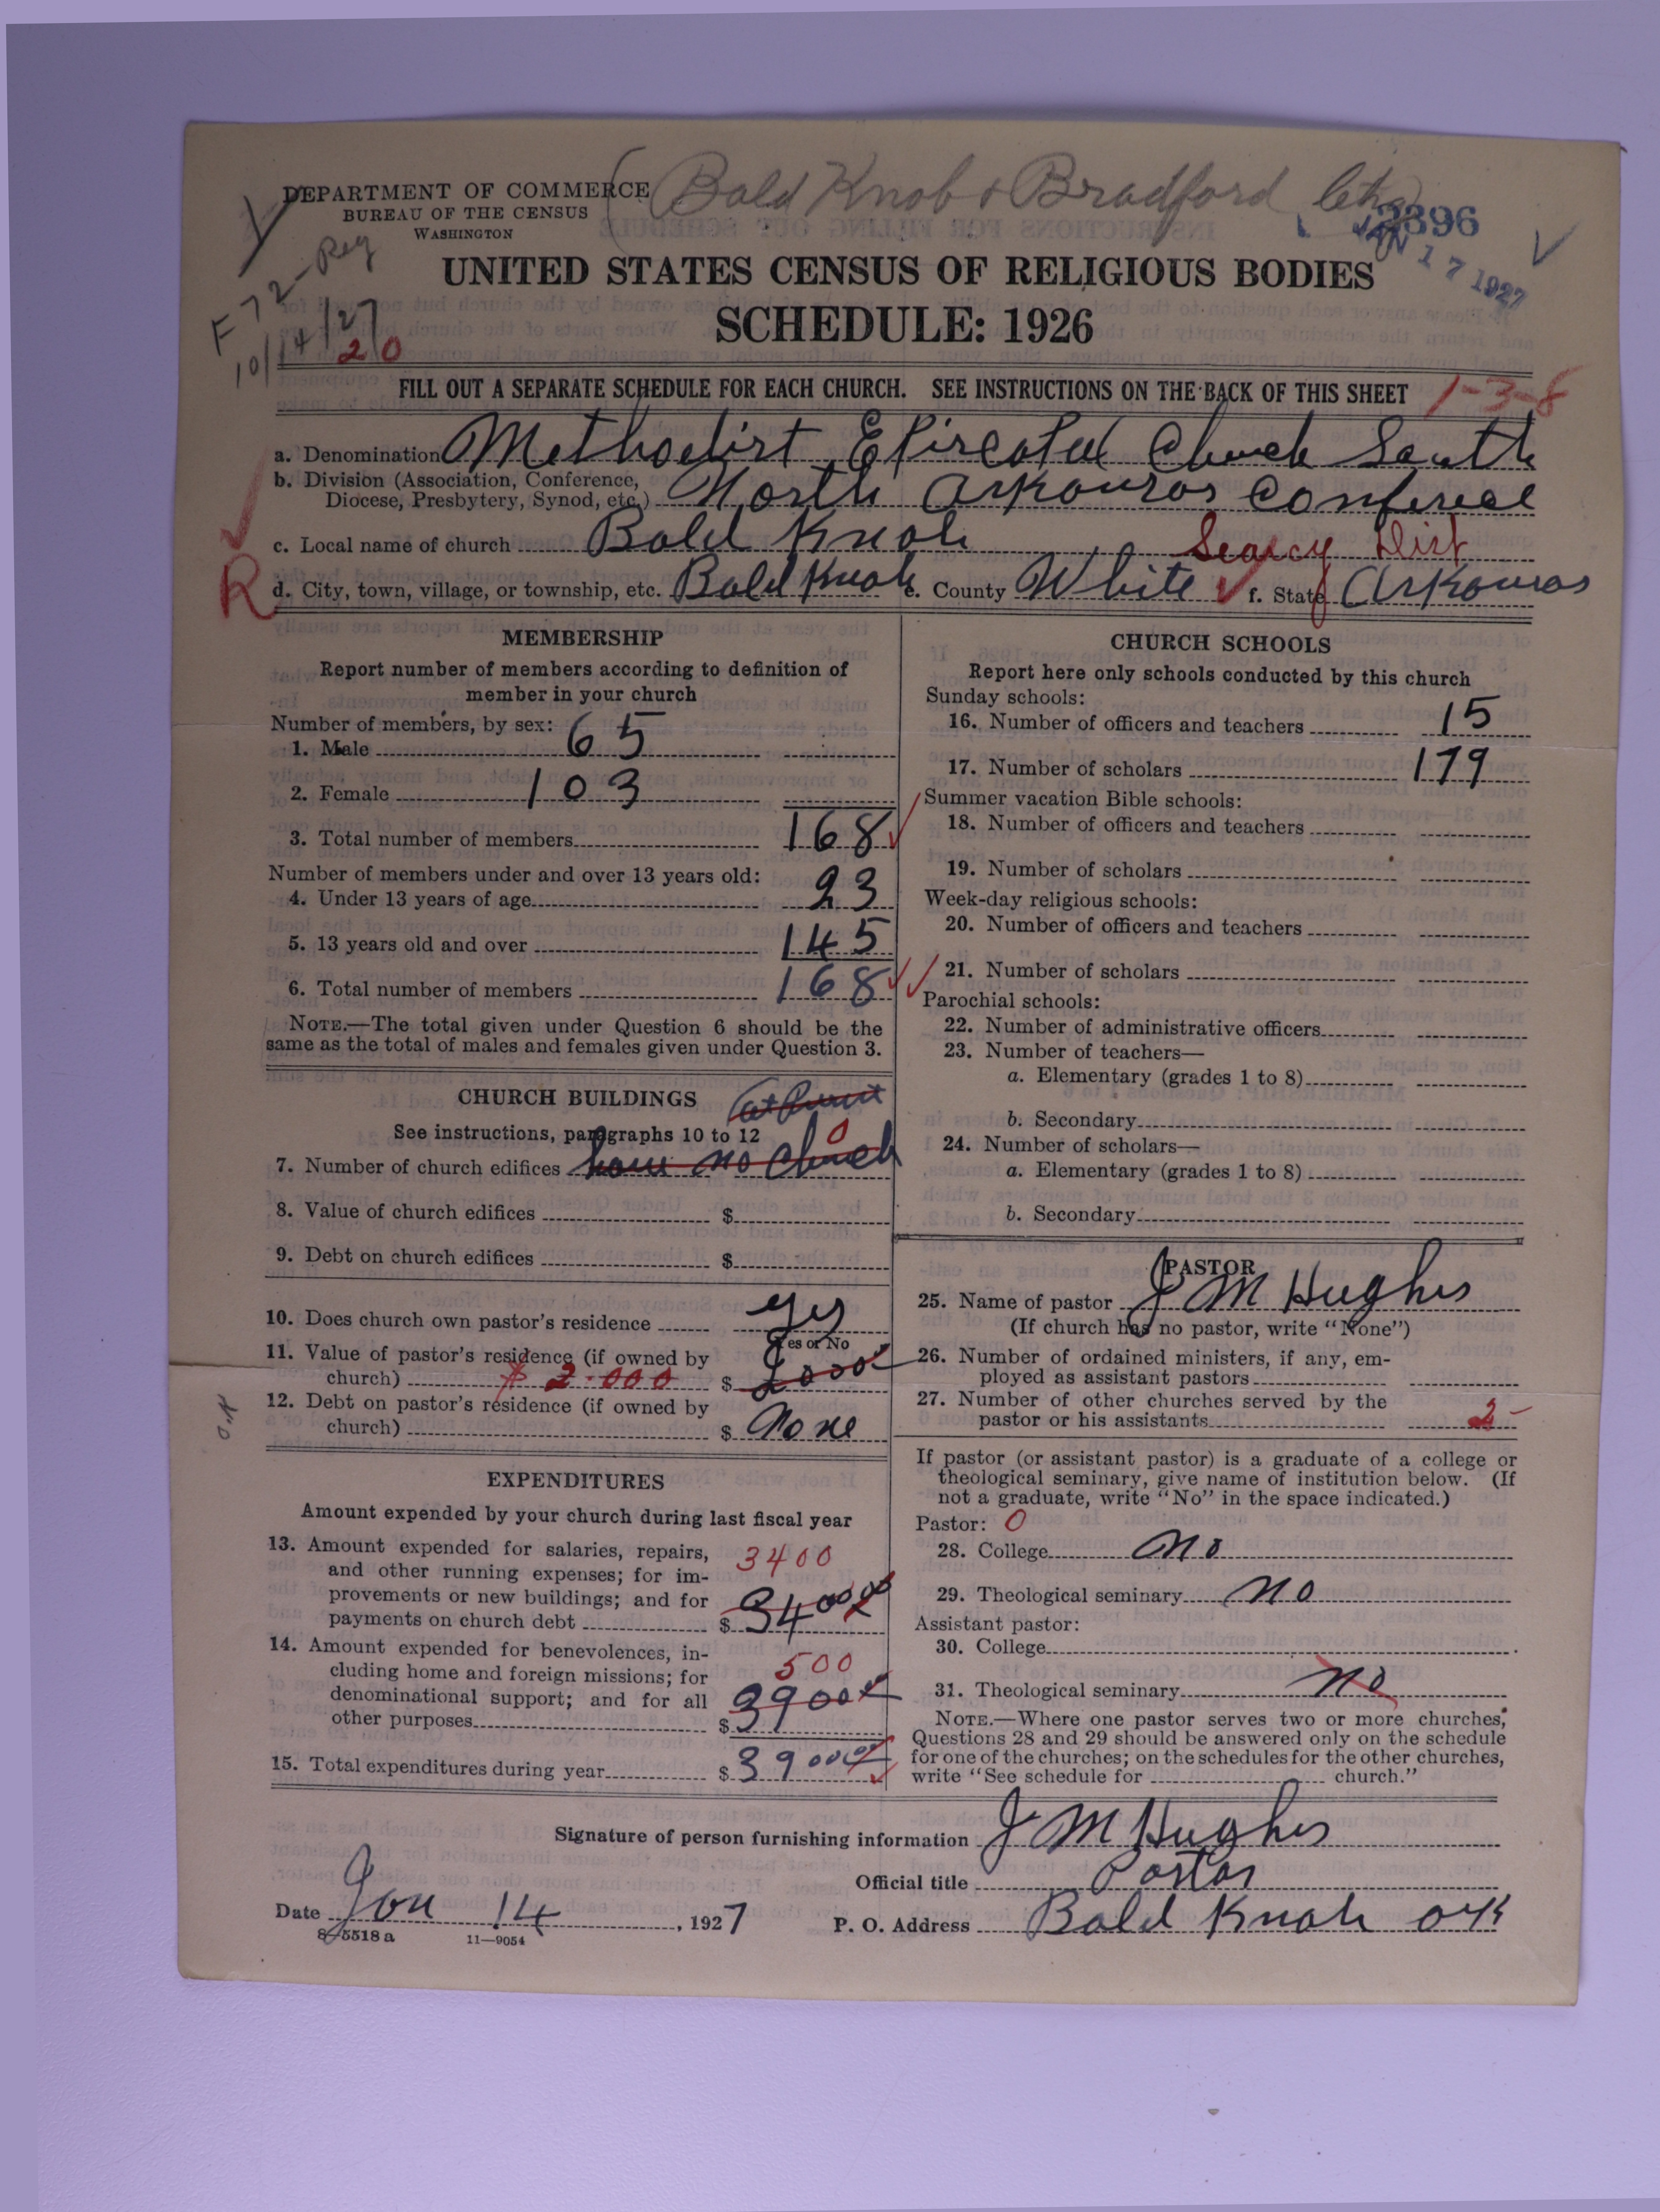 DEPARTMENT OF COMMERCE
BUREAU OF THE CENSUS
WASHINGTON
(Bald Knob & Bradford
2396
JAN 17 1927
F 72-Reg
10/14/27
20
UNITED STATES CENSUS OF RELIGIOUS BODIES
SCHEDULE: 1926
FILL OUT A SEPARATE SCHEDULE FOR EACH CHURCH. SEE INSTRUCTIONS ON THE BACK OF THIS SHEET
1-3-8
a. Denomination Methodist Episcopal Church South
b. Division (Association, Conference, Diocese, Presbytery, Synod, etc.) North Arkansas Conference
c. Local name of church Bald Knob
Searcy Dist
R
d. City, town, village, or township, etc. Bald Knob e. County White f. State Arkansas
MEMBERSHIP
Report number of members according to definition of
member in your church
Number of members, by sex:
1. Male 65
2. Female 103
3. Total number of members 168
Number of members under and over 13 years old:
4. Under 13 years of age 23
5. 13 years old and over 145
6. Total number of members 168
NOTE.—The total given under Question 6 should be the
same as the total of males and females given under Question 3.
CHURCH BUILDINGS
at present
See instructions, paragraphs 10 to 12
0
7. Number of church edifices have no church
8. Value of church edifices $
9. Debt on church edifices $
10. Does church own pastor's residence yes
Yes or No
11. Value of pastor's residence (if owned by
church) $ 2.000 $ 2000
12. Debt on pastor's residence (if owned by
church) $ None
EXPENDITURES
Amount expended by your church during last fiscal year
13. Amount expended for salaries, repairs,
and other running expenses; for im-
provements or new buildings; and for
payments on church debt $ 3400
3400
14. Amount expended for benevolences, in-
cluding home and foreign missions; for
denominational support; and for all
other purposes $ 3900
500
15. Total expenditures during year $ 3900
CHURCH SCHOOLS
Report here only schools conducted by this church
Sunday schools:
16. Number of officers and teachers 15
17. Number of scholars 179
Summer vacation Bible schools:
18. Number of officers and teachers
19. Number of scholars
Week-day religious schools:
20. Number of officers and teachers
21. Number of scholars
Parochial schools:
22. Number of administrative officers
23. Number of teachers—
a. Elementary (grades 1 to 8)
b. Secondary
24. Number of scholars—
a. Elementary (grades 1 to 8)
b. Secondary
PASTOR
25. Name of pastor J M Hughes
(If church has no pastor, write "None")
26. Number of ordained ministers, if any, em-
ployed as assistant pastors
27. Number of other churches served by the
pastor or his assistants
If pastor (or assistant pastor) is a graduate of a college or
theological seminary, give name of institution below. (If
not a graduate, write "No" in the space indicated.)
Pastor: 0
28. College no
29. Theological seminary no
Assistant pastor:
30. College
31. Theological seminary no
NOTE.—Where one pastor serves two or more churches,
Questions 28 and 29 should be answered only on the schedule
for one of the churches; on the schedules for the other churches,
write "See schedule for church."
Signature of person furnishing information J M Hughes
Official title Pastor
Date Jan 14, 1927
P. O. Address Bald Knob ark
8-5518 a
11—9054